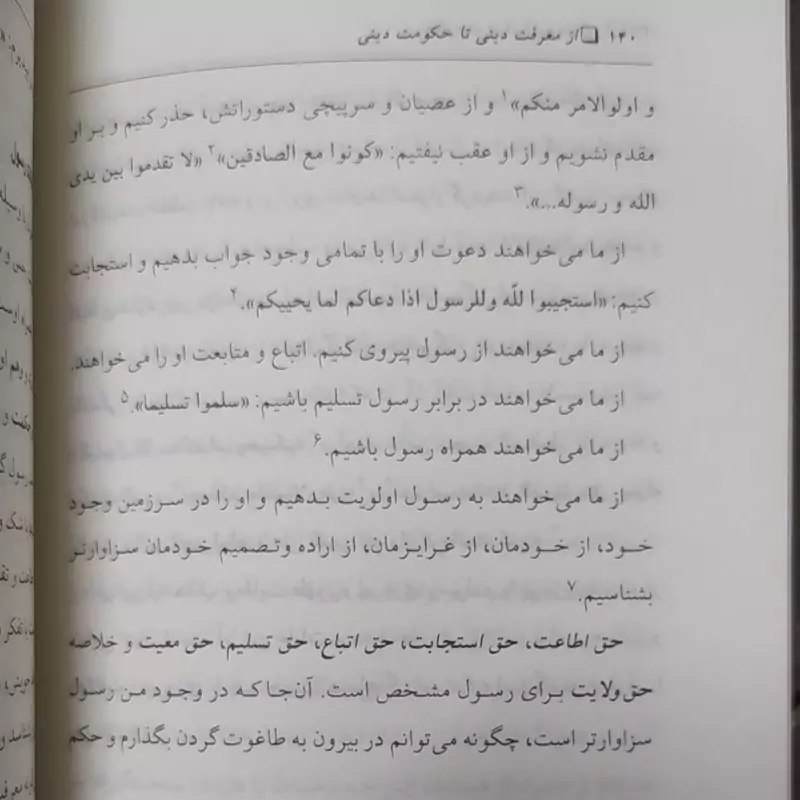 ۱۴۰ ❑ از معرفت دینی تا حکومت دینی
و اولوالامر منکم»۱ و از عصیان و سرپیچی دستوراتش، حذر کنیم و بر او
مقدم نشویم و از او عقب نیفتیم: «کونوا مع الصادقین»۲ «لا تقدموا بین یدی
الله و رسوله...».۳
از ما می‌خواهند دعوت او را با تمامی وجود جواب بدهیم و استجابت
کنیم: «استجیبوا للّه وللرسول اذا دعاکم لما یحییکم».۴
از ما می‌خواهند از رسول پیروی کنیم. اتباع و متابعت او را می‌خواهند.
از ما می‌خواهند در برابر رسول تسلیم باشیم: «سلموا تسلیما».۵
از ما می‌خواهند همراه رسول باشیم.۶
از ما می‌خواهند به رسول اولویت بدهیم و او را در سرزمین وجود
خود، از خودمان، از غرایزمان، از اراده وتصمیم خودمان سزاوارتر
بشناسیم.۷
حق اطاعت، حق استجابت، حق اتباع، حق تسلیم، حق معیت و خلاصه
حق ولایت برای رسول مشخص است. آن‌جا که در وجود من رسول
سزاوارتر است، چگونه می‌توانم در بیرون به طاغوت گردن بگذارم و حکم